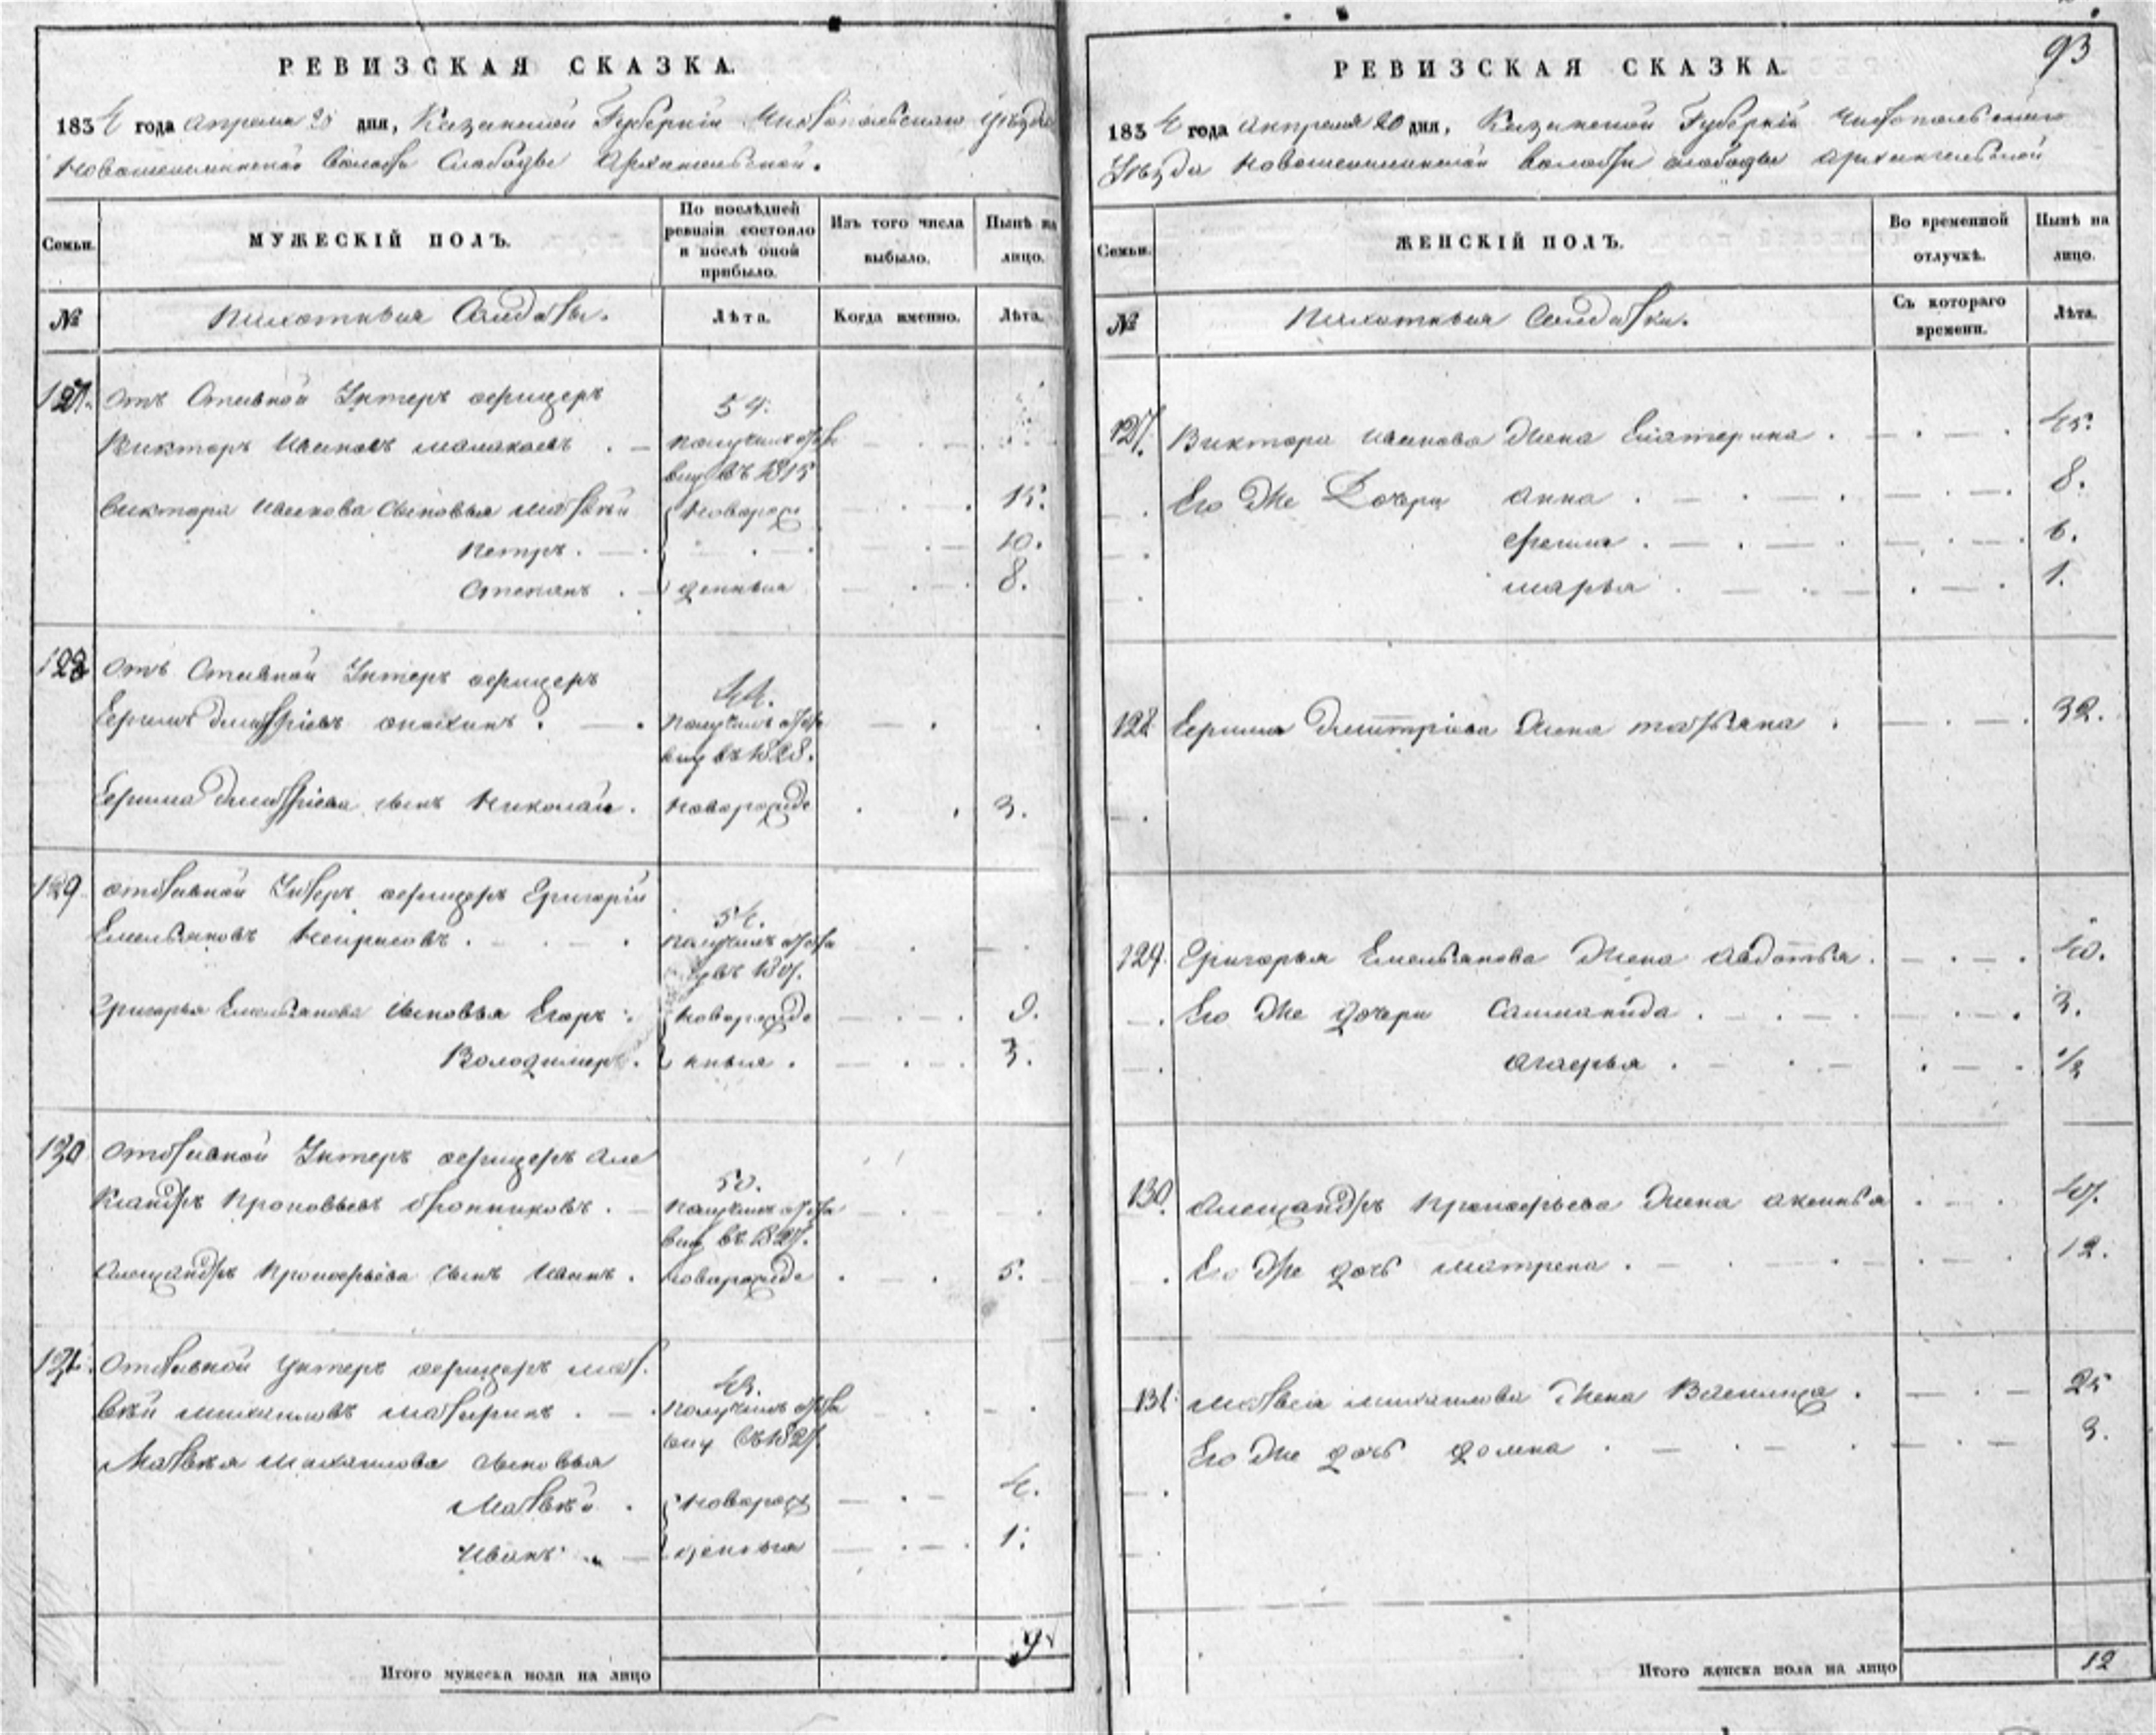 РЕВИЗСКАЯ СКАЗКА.
1834 года апреля 20 дня, Казанской Губернiи Чистопольскаго уѣзда
Новошешминской волости Слободы Архангельской.
Семьи.
МУЖЕСКIЙ ПОЛЪ.
По послѣдней ревизiи состояло и послѣ оной прибыло.
Изъ того числа выбыло.
Нынѣ на лицо.
№
Пихотныя Солдаты.
Лѣта.
Когда именно.
Лѣта.
127. отъ Ставной Унтеръ офицеръ
54.
Викторъ Ивановъ малахаевъ
получилъ отста
вку въ 1815
Виктора Иванова сыновья матвѣй новорож 15.
Петръ. 10.
Степанъ денныя 8.
128 отъ Ставной Унтеръ офицеръ
44.
Ефимъ дмитрiевъ анохинъ. получилъ отста
вку въ 1828.
Ефима дмитрiева сынъ Николай. новорожде 3.
129 отставной Унтеръ офицеръ Григорiй
54.
Емельяновъ. получилъ отста
Григорья Емельянова сыновья Егоръ новорожде 9.
Володимеръ. нныя. 3.
130 отставной Унтеръ офицеръ але
50.
ксандръ Прокофьевъ бронниковъ. получилъ отста
вку въ 1827.
Александръ Прокофьева сынъ Иванъ. новорожде 5.
131. отставной унтеръ офицеръ мат
43.
вѣй михаиловъ матюринъ. получилъ отста
вку въ 1827.
Матвѣя михаилова сыновья
Матвѣй. новорож 4.
Иванъ денныя 1.
Итого мужеска пола на лицо 9
93
РЕВИЗСКАЯ СКАЗКА.
1834 года апреля 20 дня, Казанской Губернiи Чистопольскаго
Уѣзда Новошешминской волости слободы архангельской
Семьи.
ЖЕНСКIЙ ПОЛЪ.
Во временной отлучкѣ.
Нынѣ на лицо.
№
Пихотныя Солдатки.
Съ котораго времени.
Лѣта.
127. Виктора иванова жена Екатерина. 45.
Его же Дочери анна. 8.
фекла. 6.
марья 1.
128 Ефима Дмитрiева жена татьяна 32.
129. Григорья Емельянова жена авдотья. 40.
Его же дочери Саломанида. 3.
агафья. 1/2
130. александръ прокофьева жена аксинья 47.
Его же дочь матрена. 12.
131. матвея михаилова жена Василиса. 25
Его же дочь домна 3.
Итого женска пола на лицо 12